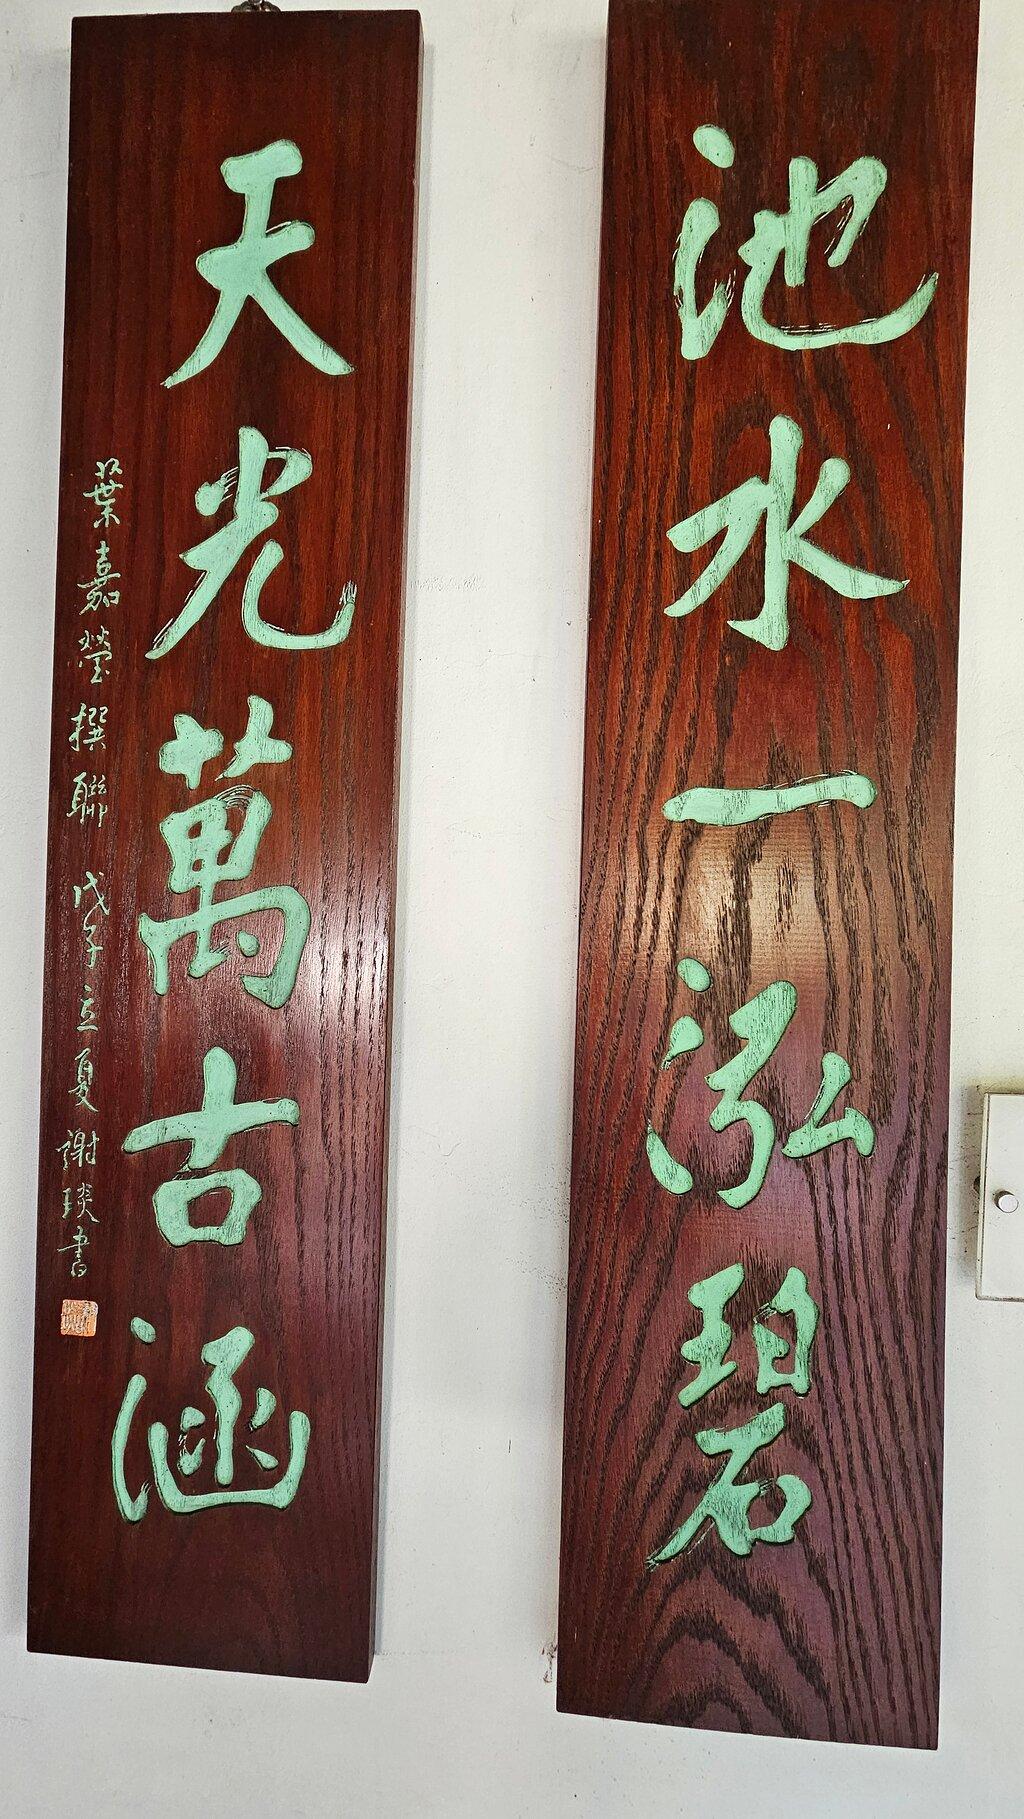 池水一泓碧
天光萬古涵
葉嘉瑩撰聯 戊子立夏 謝琰書